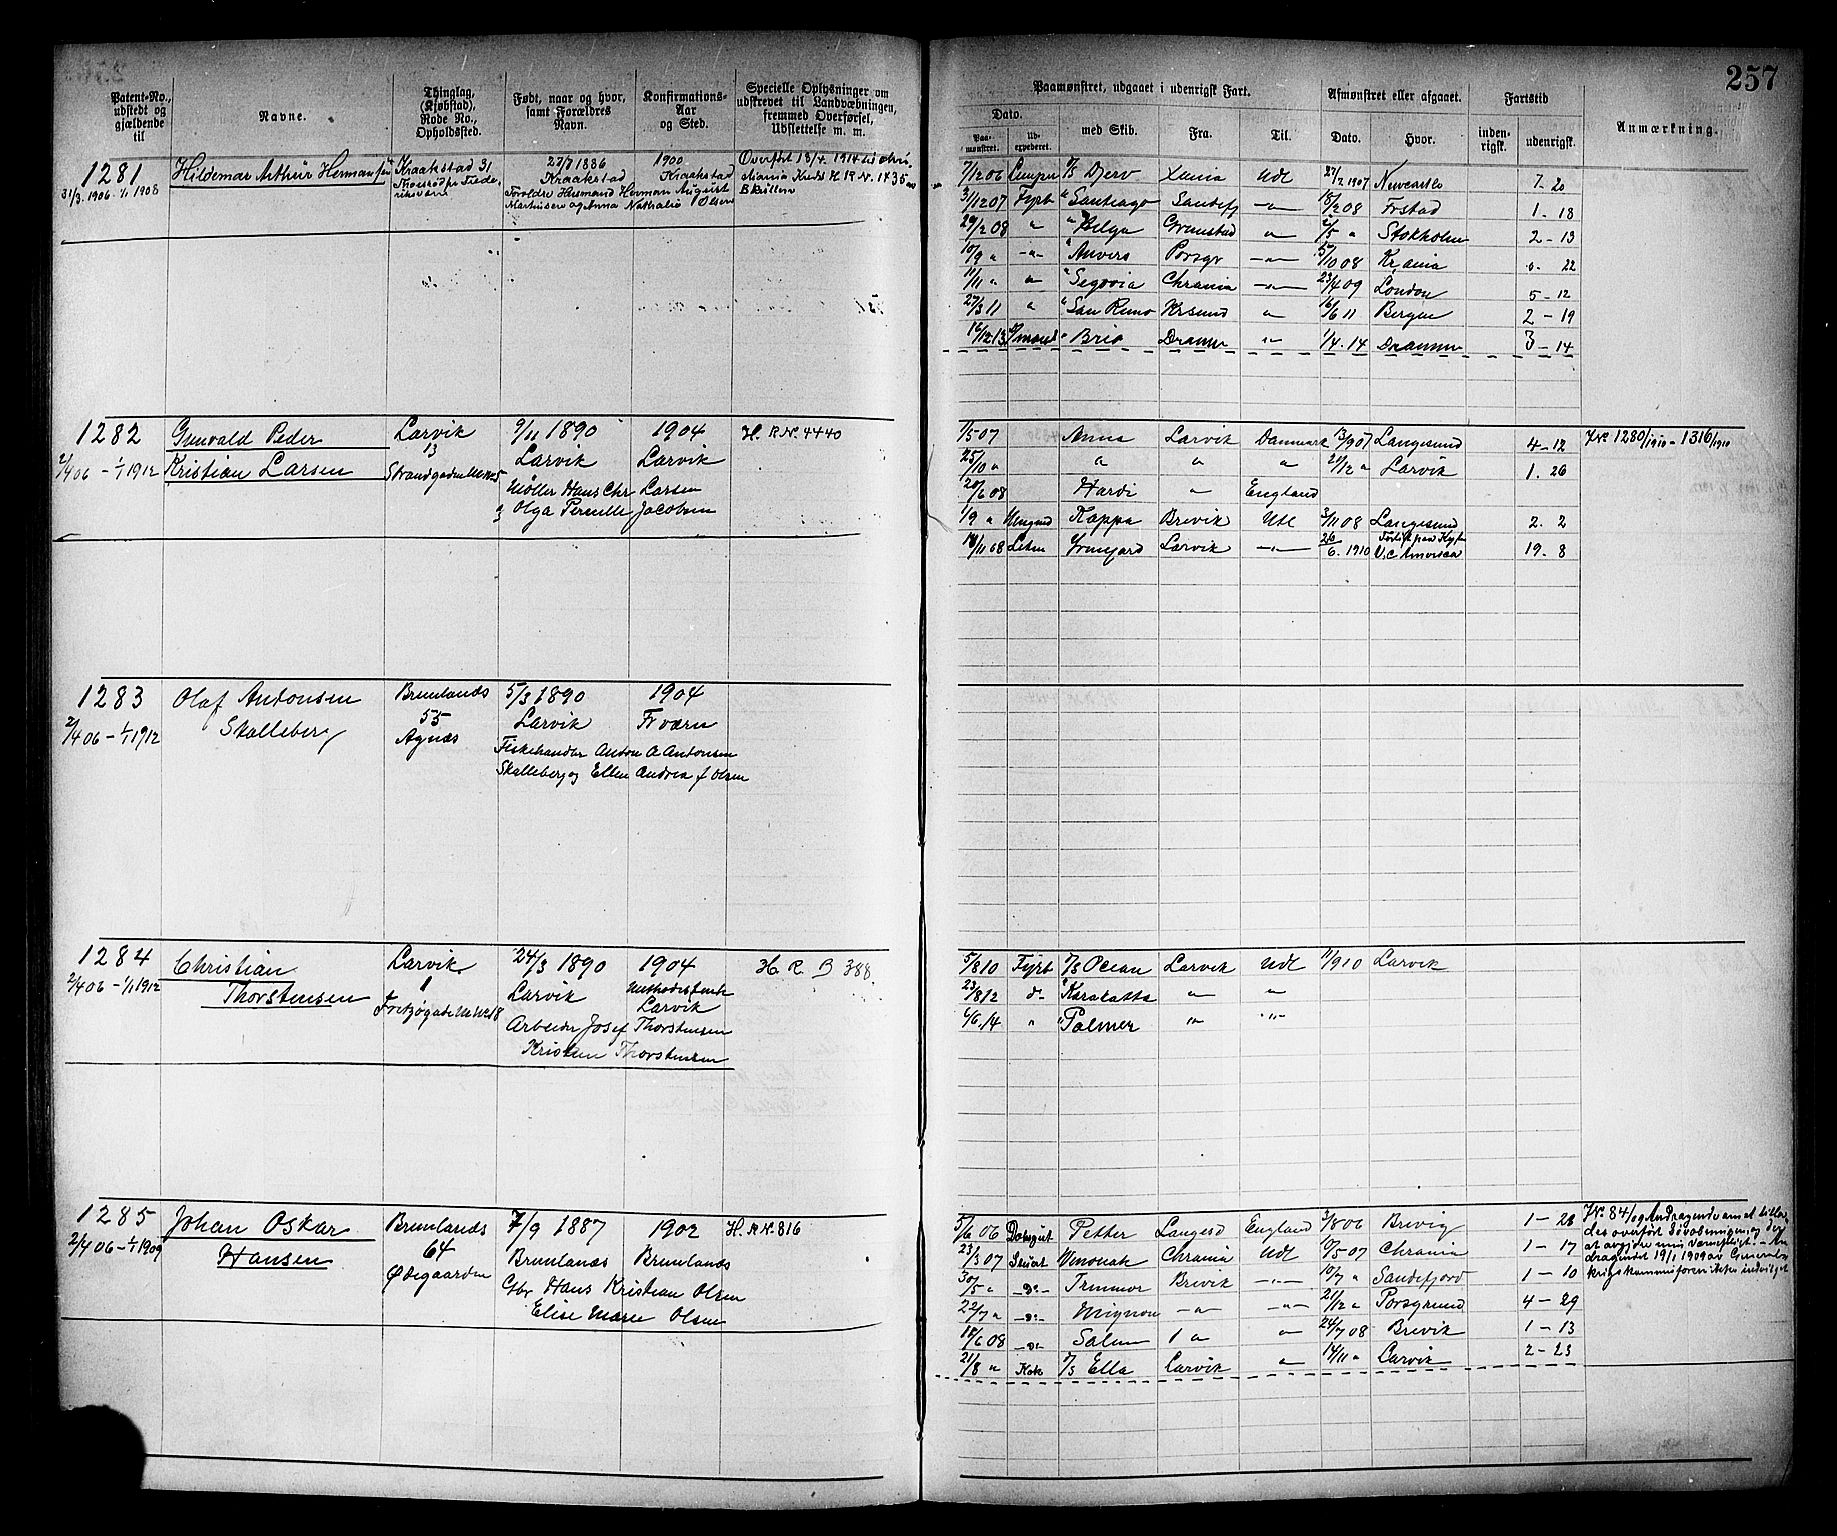 257
Patent-No., udstedt og gjældende til
Navne.
Thinglag, (Kjøbstad), Rode No., Opholdssted.
Født, naar og hvor, samt Forældres Navn.
Konfirmations-Aar og Sted.
Specielle Oplysninger om udskrevet til Landværningen, fremmed Overførsel, Udslettelse m. m.
Paamønstret, udgaaet i udenrigsk Fart.
Dato.
Paa-mønstret.
Ud-expederet.
med Skib.
Fra.
Til.
Afmønstret eller afgaaet.
Dato.
Hvor.
Fartstid
inden-rigsk.
udenrigsk.
Anmærkning.
1281
31/3. 1906 - 1/1 1908
Hildemar Arthur Hermansen
Kraakstad 31
1886
Kraakstad
1900
Kraakstad
Forældre Husmand Herman August
Martinsen og Anna Nathalie Olsen
Overført 18/4. 1914 til Chri-
stiania Kreds H R N. 1435
7/12 06 D/S Djerv Xania Udl 27/2 1907 Newcastle 7 - 20
3/12 07 Fyrb " Santiago Sandefj -"- 18/2 08 Frstad 1 - 18
29/2 08 " " Helga Grimstad " 2/5 " Stokholm 2 - 13
10/9 " -"- " Anvers Porsgr -"- 5/10 08 Kr,ania 0 - 22
11/11 " " " Segovia Chrania -"- 23/4 09 London 5 - 12
27/3 11 " " San Remo Krsund " 16/6 11 Bergen 2 - 19
16/12.13 " Brio Dramm "- 1/4.14 Drammn 3 - 14
1282
2/4 06 - 1/1 1912
Gunvald Peder
Kristian Larsen
Larvik
13
9/11 1890
Larvik
Møller Hans Chr Larsen
og Olga Pernille Jacobsen
1904
Larvik
H. R N. 4440
1/5 07 Anna Larvik Danmark 13/9 07 Langesund 4 - 12
25/10 " " " " 21/12 " Larvik 1. 26
20/6 08 Hardi " England
1/9 " Kappa Brevik Udl 3/11 08 Langesund 2. 2
18/11 08 Irmgard Larvik -"- 26/6. 1910 19 - 8
J.No. 1280/1910 - 1316/1910
1283
2/4 06 - 1/1 1912
Olaf Antonsen
Skalleberg
Brunlanæs
55
Agnæs
5/3 1890
Larvik
Fiskehandler Anton A Antonsen
Skalleberg og Ellen Andrea f Olsen
1904
Fr værn
1284
2/4 06 - 1/1 1912
Christian
Thorstensen
Larvik
1
24/3 1890
Larvik
Arbeider Josef Thorstensen
Kristen Thorstensen
1904
Larvik
H R B 388
5/8 10 Fyrb D/S Ocean Larvik Udl 11/9 10 Larvik
23/8 12 do- " Karakatta " "
6/6.14 " " Palmer " -"-
1285
2/4 06 - 1/1 1909
Johan Oskar
Hansen
Brunlanæs
64
Ødegaarden
7/9 1887
Brunlanæs
Gbr Hans Kristian Olsen
Elise Marie Olsen
1902
Brunlanæs
H. R N. 816
5/6 06 Petter Langesd England 3/8 06 Brevig 1 - 28
23/3 07 Stuart Winonah Chrania Udl 10/5 07 Chrania 1 - 17
30/5 " -do- Trimmor Brevik -"- 10/7 " Sandefjord 1 - 10
22/7 " -do- Mignon -"- -"- 21/12 " Porsgrund 4 - 29
10/6 08 -do- Salem " " 24/7 08 Brevik 1 - 13
21/8 " Kok D/S Ella Larvik " 14/11 " Larvik 2 - 23
J.No. 84/09 Andragende om at tillades
overført
19/1 1909 av General-
krigskommissæren